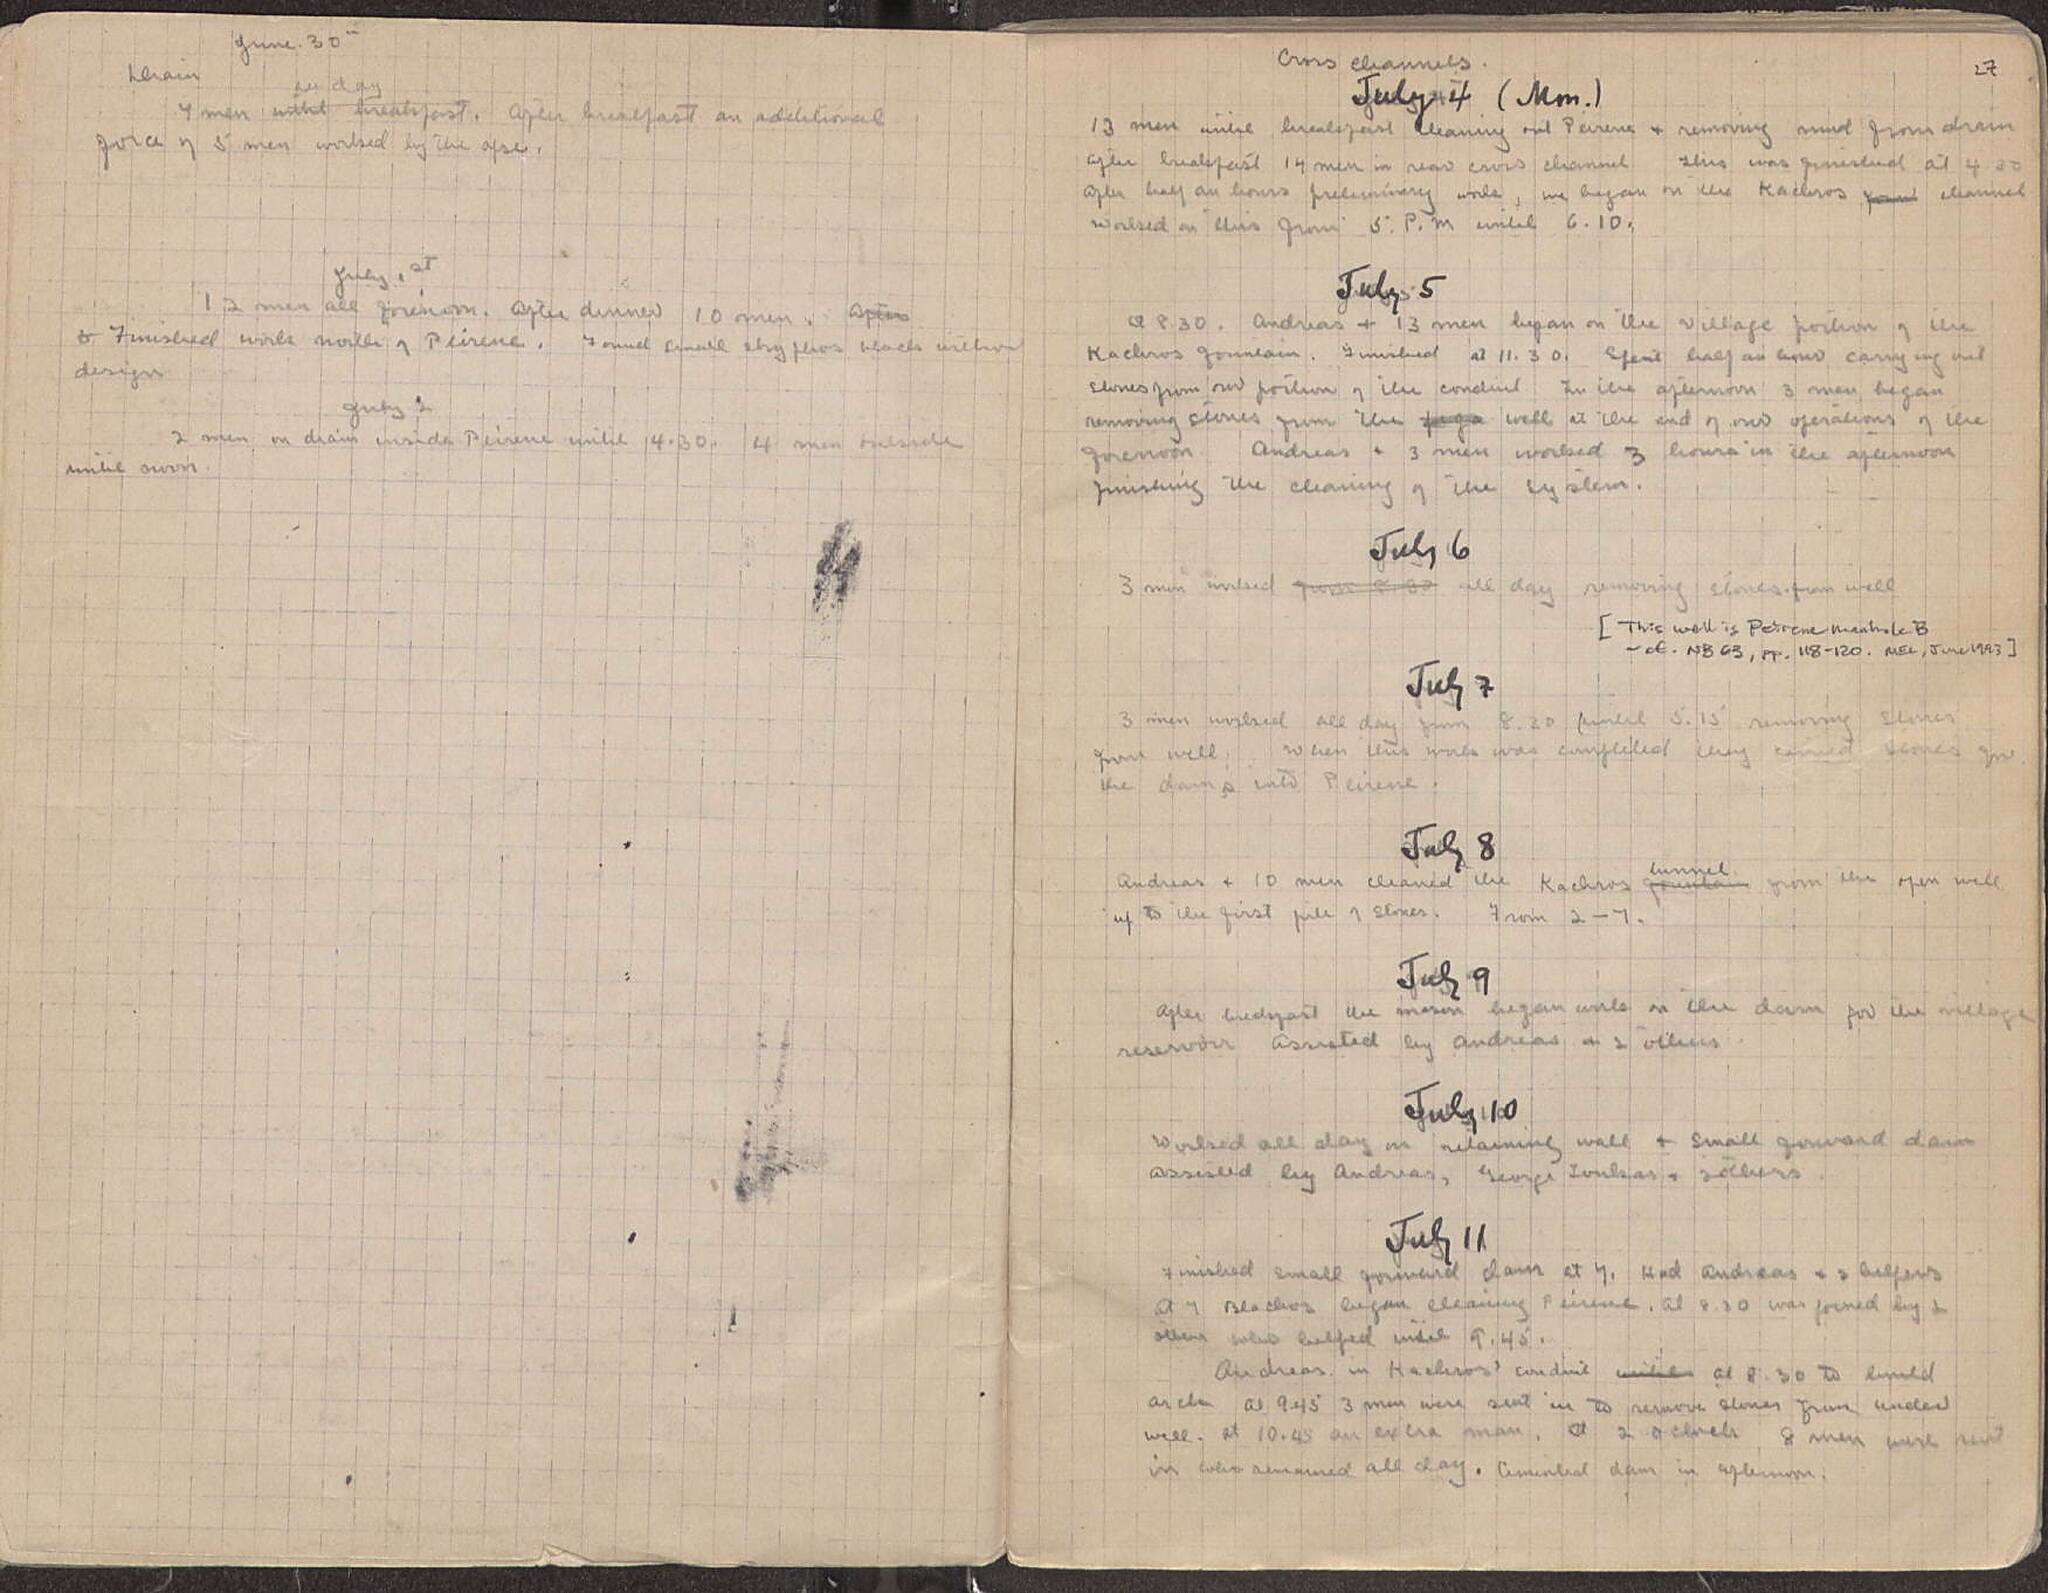 June 30th
Drain
all day
7 men until breakfast. After breakfast an additional
force of 5 men worked by the apse.
July 1st
12 men all forenoon. After dinner 10 men. After
& Finished work north of Peirene. Found small skyphos black without
design
July 2
2 men on drain inside Peirene until 4.30. 4 men outside
until noon.
27
Cross channels.
July 4 (Mon.)
13 men until breakfast cleaning out Peirene & removing mud from drain
After breakfast 14 men in rear cross channel This was finished at 4 30
After half an hours preliminary work, we began on the Kachros channel
Worked on this from 5. P.M until 6.10.
July 5
At 8.30. Andreas + 13 men began on the village portion of the
Kachros fountain. Finished at 11.30. Spent half an hour carrying out
stones from our portion of the conduit In the afternoon 3 men began
removing stones from the well at the end of our operations of the
forenoon Andreas + 3 men worked 3 hours in the afternoon
finishing the cleaning of the system.
July 6
3 men worked from 8.30 all day removing stones from well
[This well is Peirene manhole B
- cf. NB 63, pp. 118-120. MEL, June 1993]
July 7
3 men worked all day from 8.30 until 5.15 removing stones
from well. When this work was completed they carried stones for
the dams into Peirene.
July 8
tunnel
Andreas + 10 men cleaned the Kachros fountain from the open well
up to the first pile of stones. From 2-7.
July 9
After breakfast the mason began work on the dam for the village
reservoir assisted by Andreas + 2 others.
July 10
Worked all day on retaining wall + small forward dam
assisted by Andreas, George + 2 others.
July 11
Finished small forward dam at 7. Had Andreas + 2 helpers
At 7 Blachos began cleaning Peirene. At 8.30 was joined by 2
others who helped until 9.45.
Andreas in Kachros' conduit until at 8.30 to build
arch At 9.45 3 men were sent in to remove stones from under
well. At 10.45 an extra man. At 2 oclock 8 men were sent
in who remained all day. Cemented dam in afternoon.